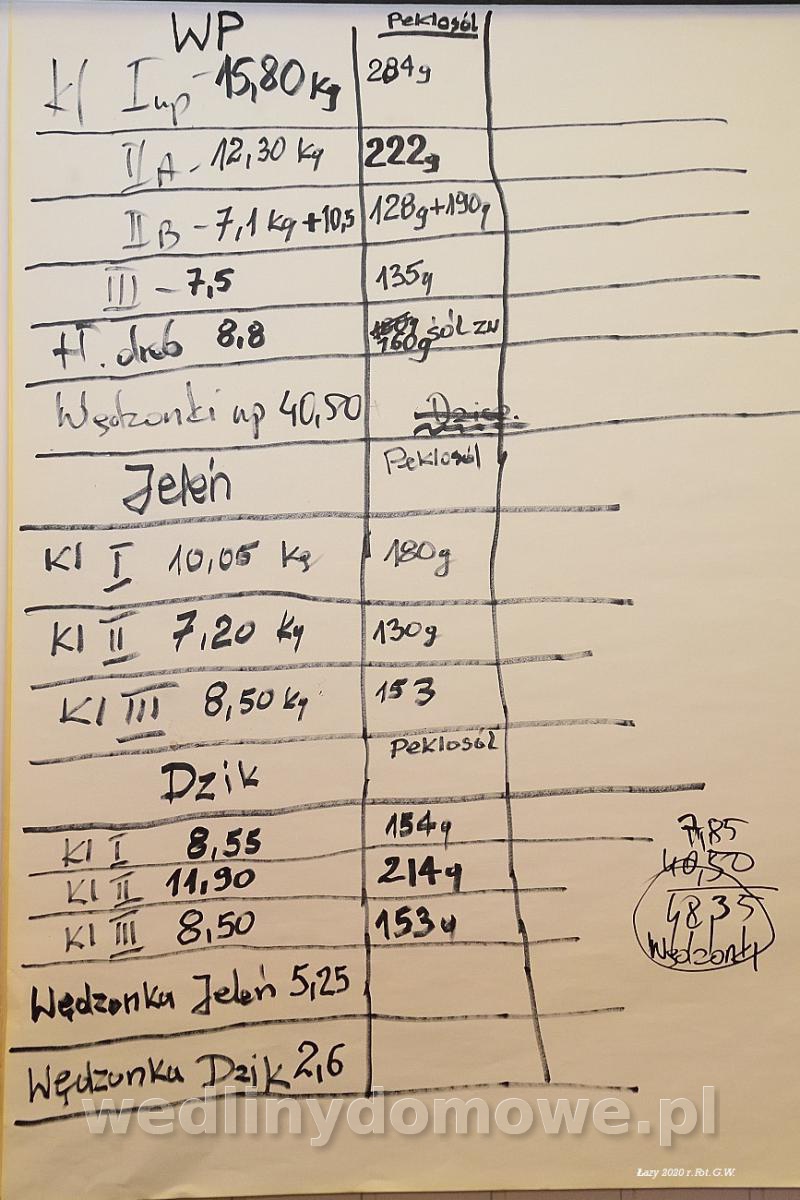 WP Peklosól
Kl I wp - 15,80 kg 284g
II A - 12,30 kg 222g
II B - 7,1 kg + 10,5 128g + 190g
III - 7,5 135g
tł. drob 8,8 160g sól zw
Wędzonki wp 40,50 Dzicz.
Jeleń Peklosól
Kl I 10,05 kg 180g
Kl II 7,20 kg 130g
Kl III 8,50 kg 153
Dzik Peklosól
Kl I 8,55 154g
Kl II 11,90 214g
Kl III 8,50 153g
Wędzonka Jeleń 5,25
Wędzonka Dzik 2,6
7,85
40,50
48,35
Wędzonki
wedlinydomowe.pl
Łazy 2020 r. Fot. G.W.